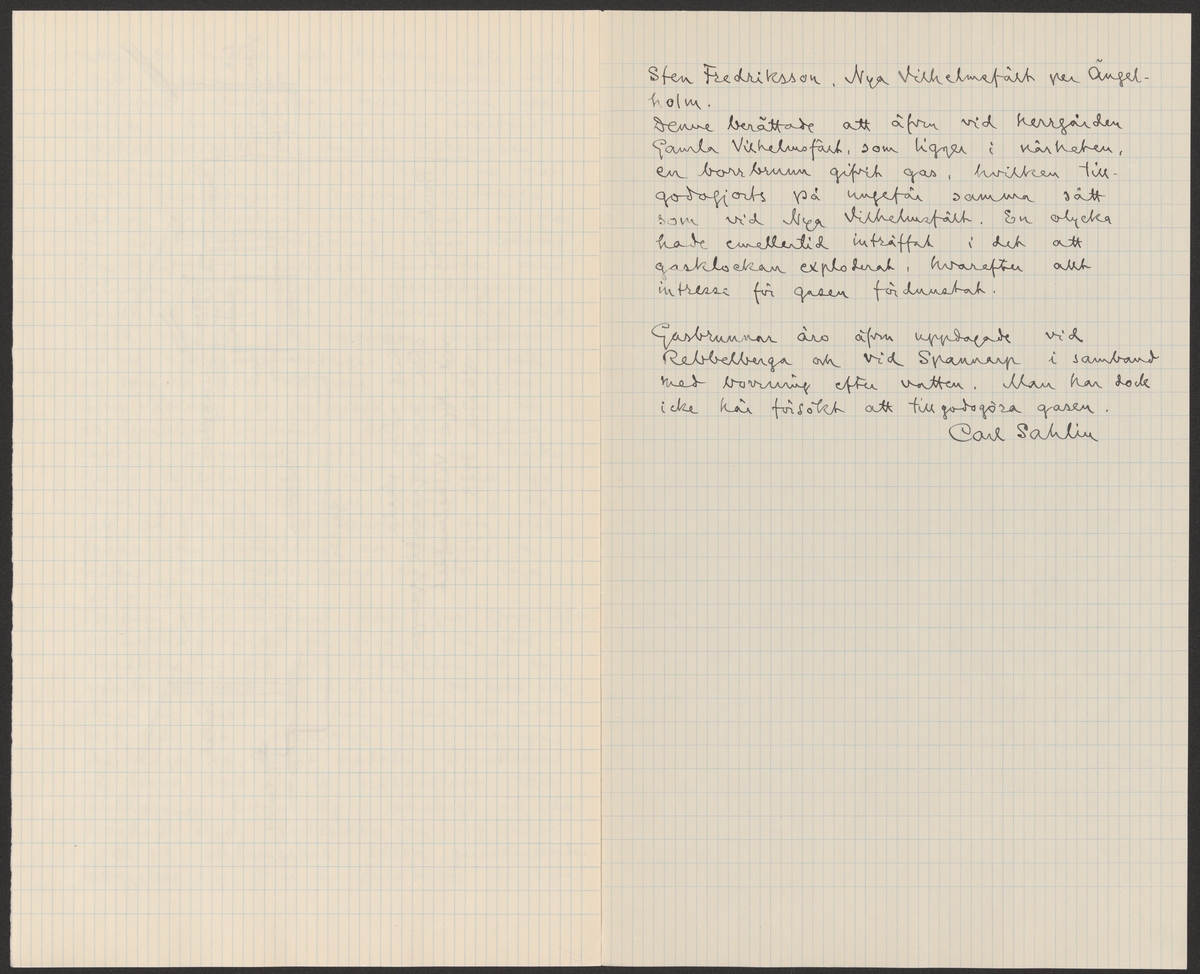 Sten Fredriksson, Nya Vilhelmsfält per Ängel-
holm.
Denne berättade att äfven vid herrgården
Gamla Vilhelmsfält, som ligger i närheten,
en borrbrunn gifvit gas, hvilken till-
godogjorts på ungefär samma sätt
som vid Nya Vilhelmsfält. En olycka
hade emellertid inträffat i det att
gasklockan exploderat, hvarefter allt
intresse för gasen fördunstat.
Gasbrunnar äro äfven uppdagade vid
Rebbelberga och vid Spannarp i samband
med borrning efter vatten. Man har dock
icke här försökt att tillgodogöra gasen.
Carl Sahlin